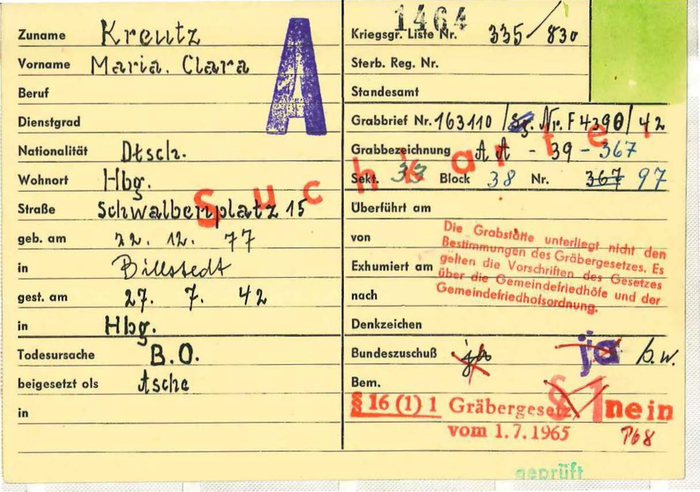 1464
A
Zuname Kreutz
Vorname Maria. Clara
Beruf
Dienstgrad
Nationalität Dtsch.
Wohnort Hbg.
Straße Schwalbenplatz 15
geb. am 22. 12. 77
in Billstedt
gest. am 27. 7. 42
in Hbg.
Todesursache B.O.
beigesetzt als Asche
in
Kriegsgr. Liste Nr. 335/830
Sterb. Reg. Nr.
Standesamt
Grabbrief Nr. 163110 / Nr. F 4390/42
Grabbezeichnung AA - 39 - 367
Suchkartei
Sekt. 33 Block 38 Nr. 367 97
Überführt am
von
Exhumiert am
nach
Die Grabstätte unterliegt nicht den
Bestimmungen des Gräbergesetzes. Es
gelten die Vorschriften des Gesetzes
über die Gemeindefriedhöfe und der
Gemeindefriedhofsordnung.
Denkzeichen
Bundeszuschuß ja ja b.w.
Bem.
§ 16 (1) 1 Gräbergesetz,
vom 1.7.1965
§1 nein
P68
geprüft